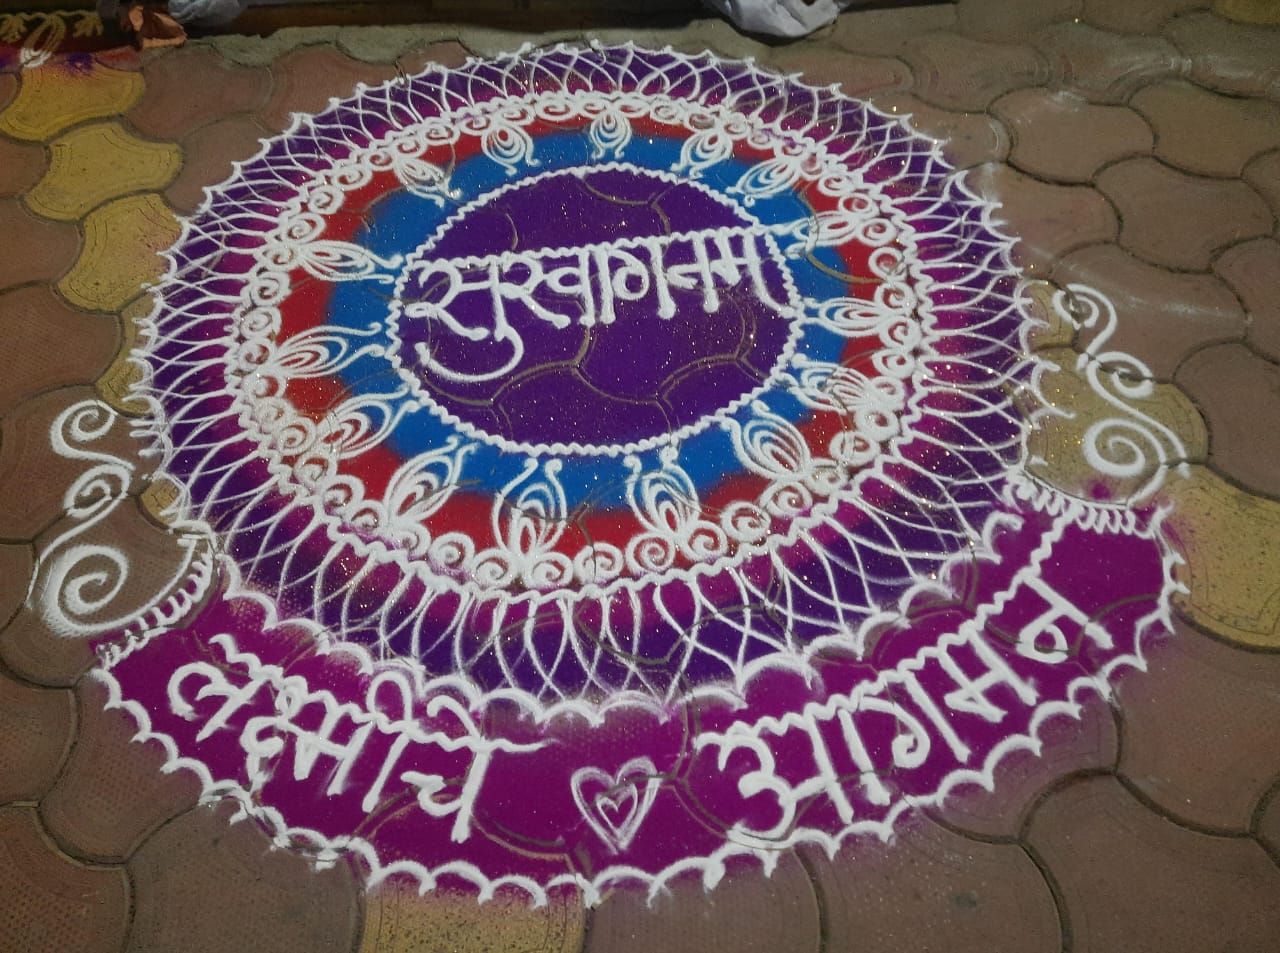 सुस्वागतम
लक्ष्मीचे आगमन